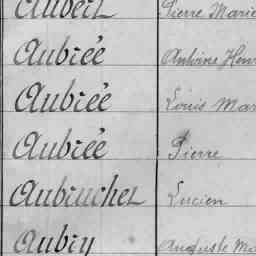 Aubert Pierre Marie
Aubrée Antoine Henr
Aubrée Louis Mar
Aubrée Pierre
Aubruchet Lucien
Aubry Auguste Ma